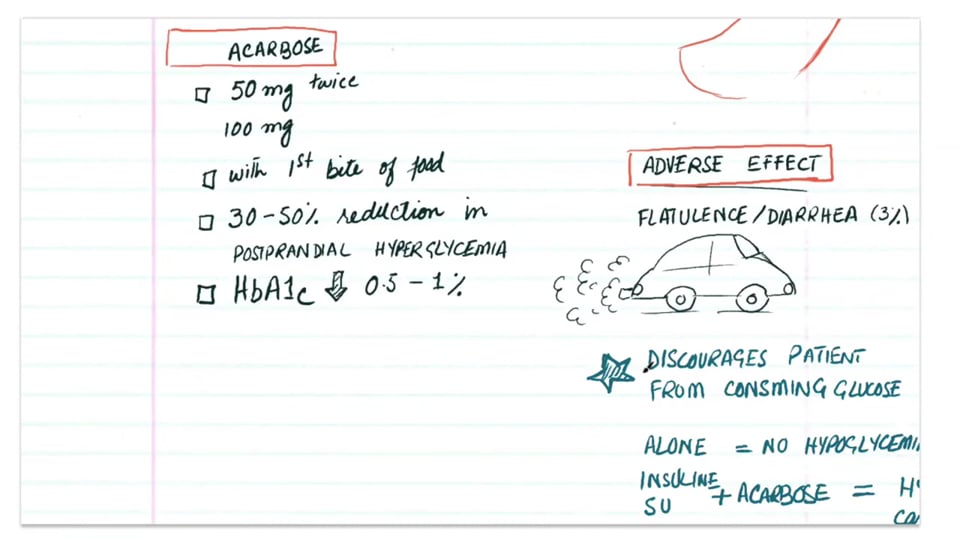 ACARBOSE
50 mg twice
100 mg
with 1st bite of food
30-50% reduction in
POSTPRANDIAL HYPERGLYCEMIA
HbA1c ⇓ 0.5 - 1%
ADVERSE EFFECT
FLATULENCE/DIARRHEA (3%)
DISCOURAGES PATIENT
FROM CONSMING GLUCOSE
ALONE = NO HYPOGLYCEMI
INSULINE
SU + ACARBOSE = H